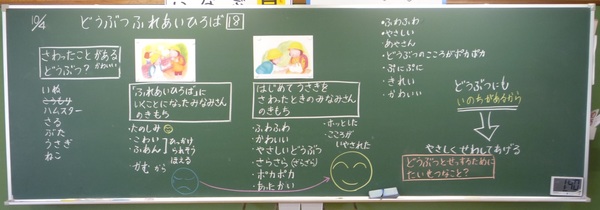 10/4
どうぶつふれあいひろば 18
さわったことがある
どうぶつ? かわいい
いぬ
こうもり
ハムスター
さる
ぶた
うさぎ
ねこ
「ふれあいひろば」に
いくことになったみなみさん
のきもち
・たのしみ
・こわい
・ふあん
ひっかけ
られそう
ほえる
・かむ から
はじめて うさぎを
さわったときの みなみさん
のきもち
・ふわふわ
・かわいい
・やさしいどうぶつ
・さらさら(ざらざら)
・ポカポカ
・あったかい
・ホッとした
・こころが
いやされた
・ふわふわ
・やさしい
・あやさん
・どうぶつのこころがポカポカ
・ぷにぷに
・きれい
・かわいい
どうぶつにも
いのちがあるから
やさしくせわしてあげる
どうぶつとせっするために
たいせつなこと?